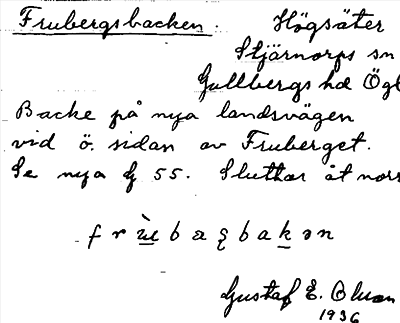 Frubergsbacken. Högsäter
Stjärnorps sn
Gullbergs hd Ögl
Backe på nya landsvägen
vid ö. sidan av Fruberget.
Se nya 55. Sluttar åt norr
Gustaf E. Olsson
1936